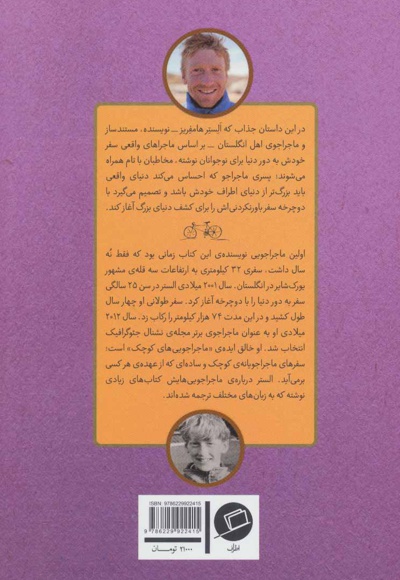 در این داستان جذاب که اَلِستِر هامفِریز _ نویسنده، مستندساز
و ماجراجوی اهل انگلستان _ بر اساس ماجراهای واقعی سفر
خودش به دور دنیا برای نوجوانان نوشته، مخاطبان با تام همراه
می‌شوند: پسری ماجراجو که احساس می‌کند دنیای واقعی
باید بزرگ‌تر از دنیای اطراف خودش باشد و تصمیم می‌گیرد با
دوچرخه سفر باورنکردنی‌اش را برای کشف دنیای بزرگ آغاز کند.
اولین ماجراجویی نویسنده‌ی این کتاب زمانی بود که فقط نُه
سال داشت. سفری ۳۲ کیلومتری به ارتفاعات سه قله‌ی مشهور
یورک‌شایر در انگلستان. سال ۲۰۰۱ میلادی الستر در سن ۲۵ سالگی
سفر به دور دنیا را با دوچرخه آغاز کرد. سفر طولانی او چهار سال
طول کشید و در این مدت ۷۴ هزار کیلومتر را رکاب زد. سال ۲۰۱۲
میلادی او به عنوان ماجراجوی برتر مجله‌ی نشنال جئوگرافیک
انتخاب شد. او خالق ایده‌ی «ماجراجویی‌های کوچک» است؛
سفرهای ماجراجویانه‌ی کوچک و ساده‌ای که از عهده‌ی هر کسی
برمی‌آید. الستر درباره‌ی ماجراجویی‌هایش کتاب‌های زیادی
نوشته که به زبان‌های مختلف ترجمه شده‌اند.
ISBN: 9786229922415
9 786229 922415
۲۱۰۰۰ تومـــان
اطراف